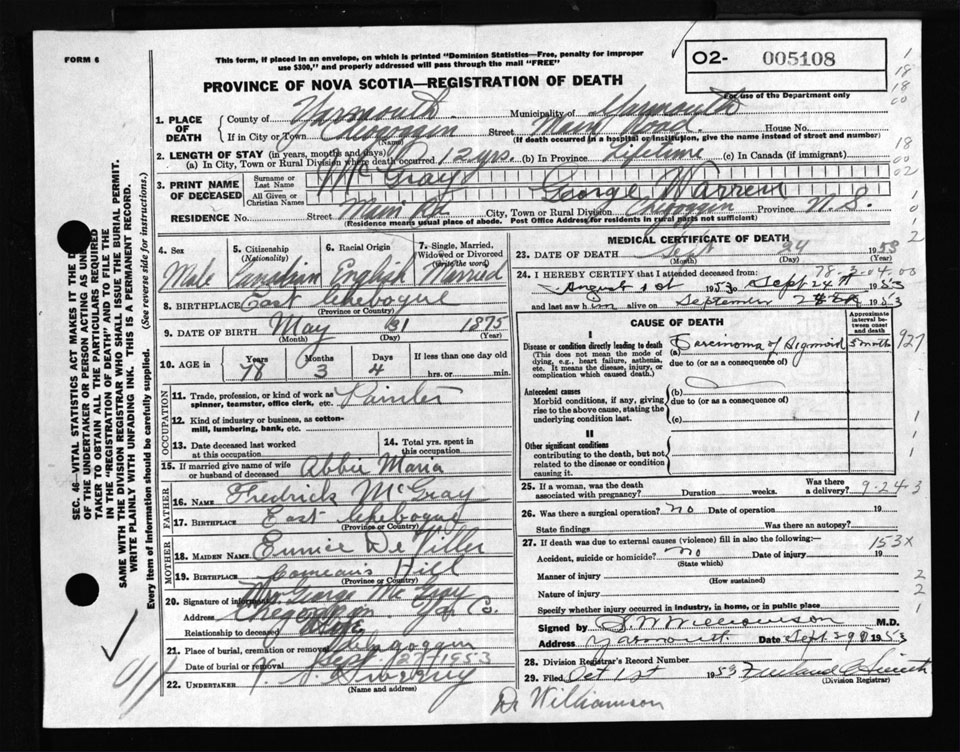 FORM 6
This form, if placed in an envelope, on which is printed "Dominion Statistics—Free, penalty for improper
use $300," and properly addressed will pass through the mail "FREE"
02- 005108
For use of the Department only
PROVINCE OF NOVA SCOTIA—REGISTRATION OF DEATH
1. PLACE OF DEATH
County of Yarmouth Municipality of Yarmouth
If in City or Town Cheboggin Street Main Road House No.
(Name) (If death occurred in a hospital or institution, give the name instead of street and number)
2. LENGTH OF STAY (in years, months and days)
(a) In City, Town or Rural Division where death occurred 12 yrs. (b) In Province Lifetime (c) In Canada (if immigrant)
3. PRINT NAME OF DECEASED
Surname or Last Name McGray
All Given or Christian Names George Warren
RESIDENCE No. Street Main Rd City, Town or Rural Division Chegoggin Province N.S.
(Residence means usual place of abode. Post Office Address for residents in rural parts not sufficient)
4. Sex Male
5. Citizenship (Nationality) Canadian
6. Racial Origin English
7. Single, Married, Widowed or Divorced (Write the word) Married
8. BIRTHPLACE East Chebogue
(Province or Country)
9. DATE OF BIRTH May 31 1875
(Month) (Day) (Year)
10. AGE in Years 78 Months 3 Days 4 If less than one day old
hrs. or min.
OCCUPATION
11. Trade, profession, or kind of work as spinner, teamster, office clerk, etc. Painter
12. Kind of industry or business, as cotton-mill, lumbering, bank, etc.
13. Date deceased last worked at this occupation
14. Total yrs. spent in this occupation
15. If married give name of wife or husband of deceased Abbie Maria
FATHER
16. NAME Fredrick McGray
17. BIRTHPLACE East Chebogue
(Province or Country)
MOTHER
18. MAIDEN NAME Eunice De Viller
19. BIRTHPLACE Comeau's Hill
(Province or Country)
20. Signature of informant Mrs George McGray
Address Chegoggin Yar. Co.
Relationship to deceased Wife
21. Place of burial, cremation or removal Chegoggin
Date of burial or removal Sept. 27 1953
22. UNDERTAKER
(Name and address)
MEDICAL CERTIFICATE OF DEATH
23. DATE OF DEATH Sept 24 1953
(Month) (Day) (Year)
78-3-04.00
24. I HEREBY CERTIFY that I attended deceased from:
August 1st 1953 to Sept 24th 1953
and last saw him alive on September 1953
CAUSE OF DEATH
Approximate interval between onset and death
I
Disease or condition directly leading to death
(This does not mean the mode of dying, e.g., heart failure, asthenia, etc. It means the disease, injury, or complication which caused death.)
(a) Carcinoma of Sigmoid 5 months
due to (or as a consequence of)
927
Antecedent causes
Morbid conditions, if any, giving rise to the above cause, stating the underlying condition last.
(b)
due to (or as a consequence of)
(c)
II
Other significant conditions
contributing to the death, but not related to the disease or condition causing it.
25. If a woman, was the death associated with pregnancy? Duration weeks. Was there a delivery?
9-24 3
26. Was there a surgical operation? no Date of operation 19
State findings Was there an autopsy?
27. If death was due to external causes (violence) fill in also the following:—
153X
Accident, suicide or homicide? No Date of injury 19
(State which)
Manner of injury
(How sustained)
Nature of injury
Specify whether injury occurred in industry, in home, or in public place
Signed by S. W. Williamson M.D.
Address Yarmouth Date Sept. 29 1953
28. Division Registrar's Record Number
29. Filed Oct 1st 1953
(Division Registrar)
Dr Williamson
SEC. 46—VITAL STATISTICS ACT MAKES IT THE
OF THE UNDERTAKER OR PERSON ACTING AS
TAKER TO OBTAIN ALL THE PARTICULARS REQUIRED
IN THE "REGISTRATION OF DEATH" AND TO FILE THE
SAME WITH THE DIVISION REGISTRAR WHO SHALL ISSUE THE BURIAL PERMIT.
WRITE PLAINLY WITH UNFADING INK. THIS IS A PERMANENT RECORD.
Every item of information should be carefully supplied. (See reverse side for instructions.)